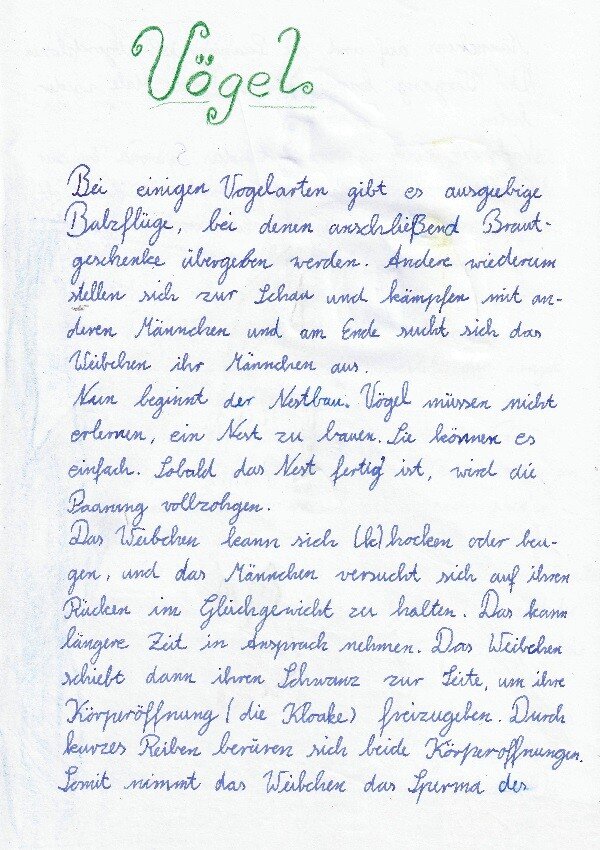 Vögel
Bei einigen Vogelarten gibt es ausgiebige
Balzflüge, bei denen anschließend Braut-
geschenke übergeben werden. Andere wiederum
stellen sich zur Schau und kämpfen mit an-
deren Männchen und am Ende sucht sich das
Weibchen ihr Männchen aus.
Nun beginnt der Nestbau. Vögel müssen nicht
erlernen, ein Nest zu bauen. Sie können es
einfach. Sobald das Nest fertig ist, wird die
Paarung vollzohgen.
Das Weibchen kann sich (h)hocken oder beu-
gen, und das Männchen versucht sich auf ihren
Rücken im Glüchgewicht zu halten. Das kann
längere Zeit in Ansprach nehmen. Das Weibchen
schiebt dann ihren Schwanz zur Seite, um ihre
Körperöffnung (die Kloake) freizugeben. Durch
kurzes Reiben berüren sich beide Körperöffnungen.
Somit nimmt das Weibchen das Sperma des